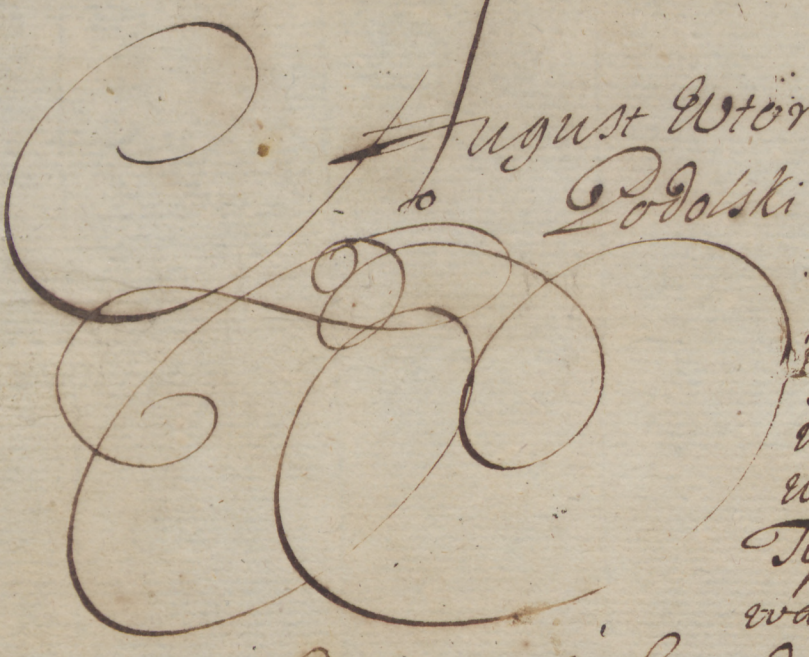 August Wtor
Podolski
Ty
wa